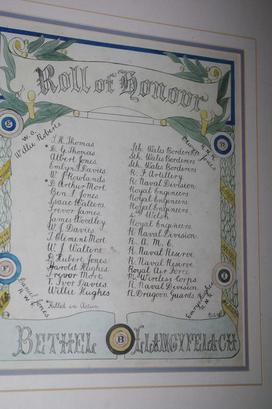 Roll of Honour
W.O. Willie Roberts
J. H. Thomas
* D. G. Thomas
Albert Jones
Emlyn J. Davies
W. J. Rowlands
* D. Arthur Mort
Ben J. Jones
Isaac Walters
Trevor James
James Woodley
W. J. Davies
T. Clement Mort
W. J. Walters
D. Hubert Jones
Harold Hughes
Trevor Mort
T. Ivor Davies
Willie Hughes
* Killed in Action
Sth. Wales Borderers
Sth. Wales Borderers
Sth. Wales Borderers
R. F. Artillery
R. Naval Division
Royal Engineers
Royal Artillery
Royal Engineers
Welsh
Royal Engineers
R. Naval Division
R. A. M. C.
R. Naval Reserve
R. Naval Division
R. Naval Reserve
Royal Air Force
Wireless Corps
R. Naval Division
R. Dragoon Guards
Jones
Daniel Jones
Hughes
BETHEL
B
LLANGYFELACH